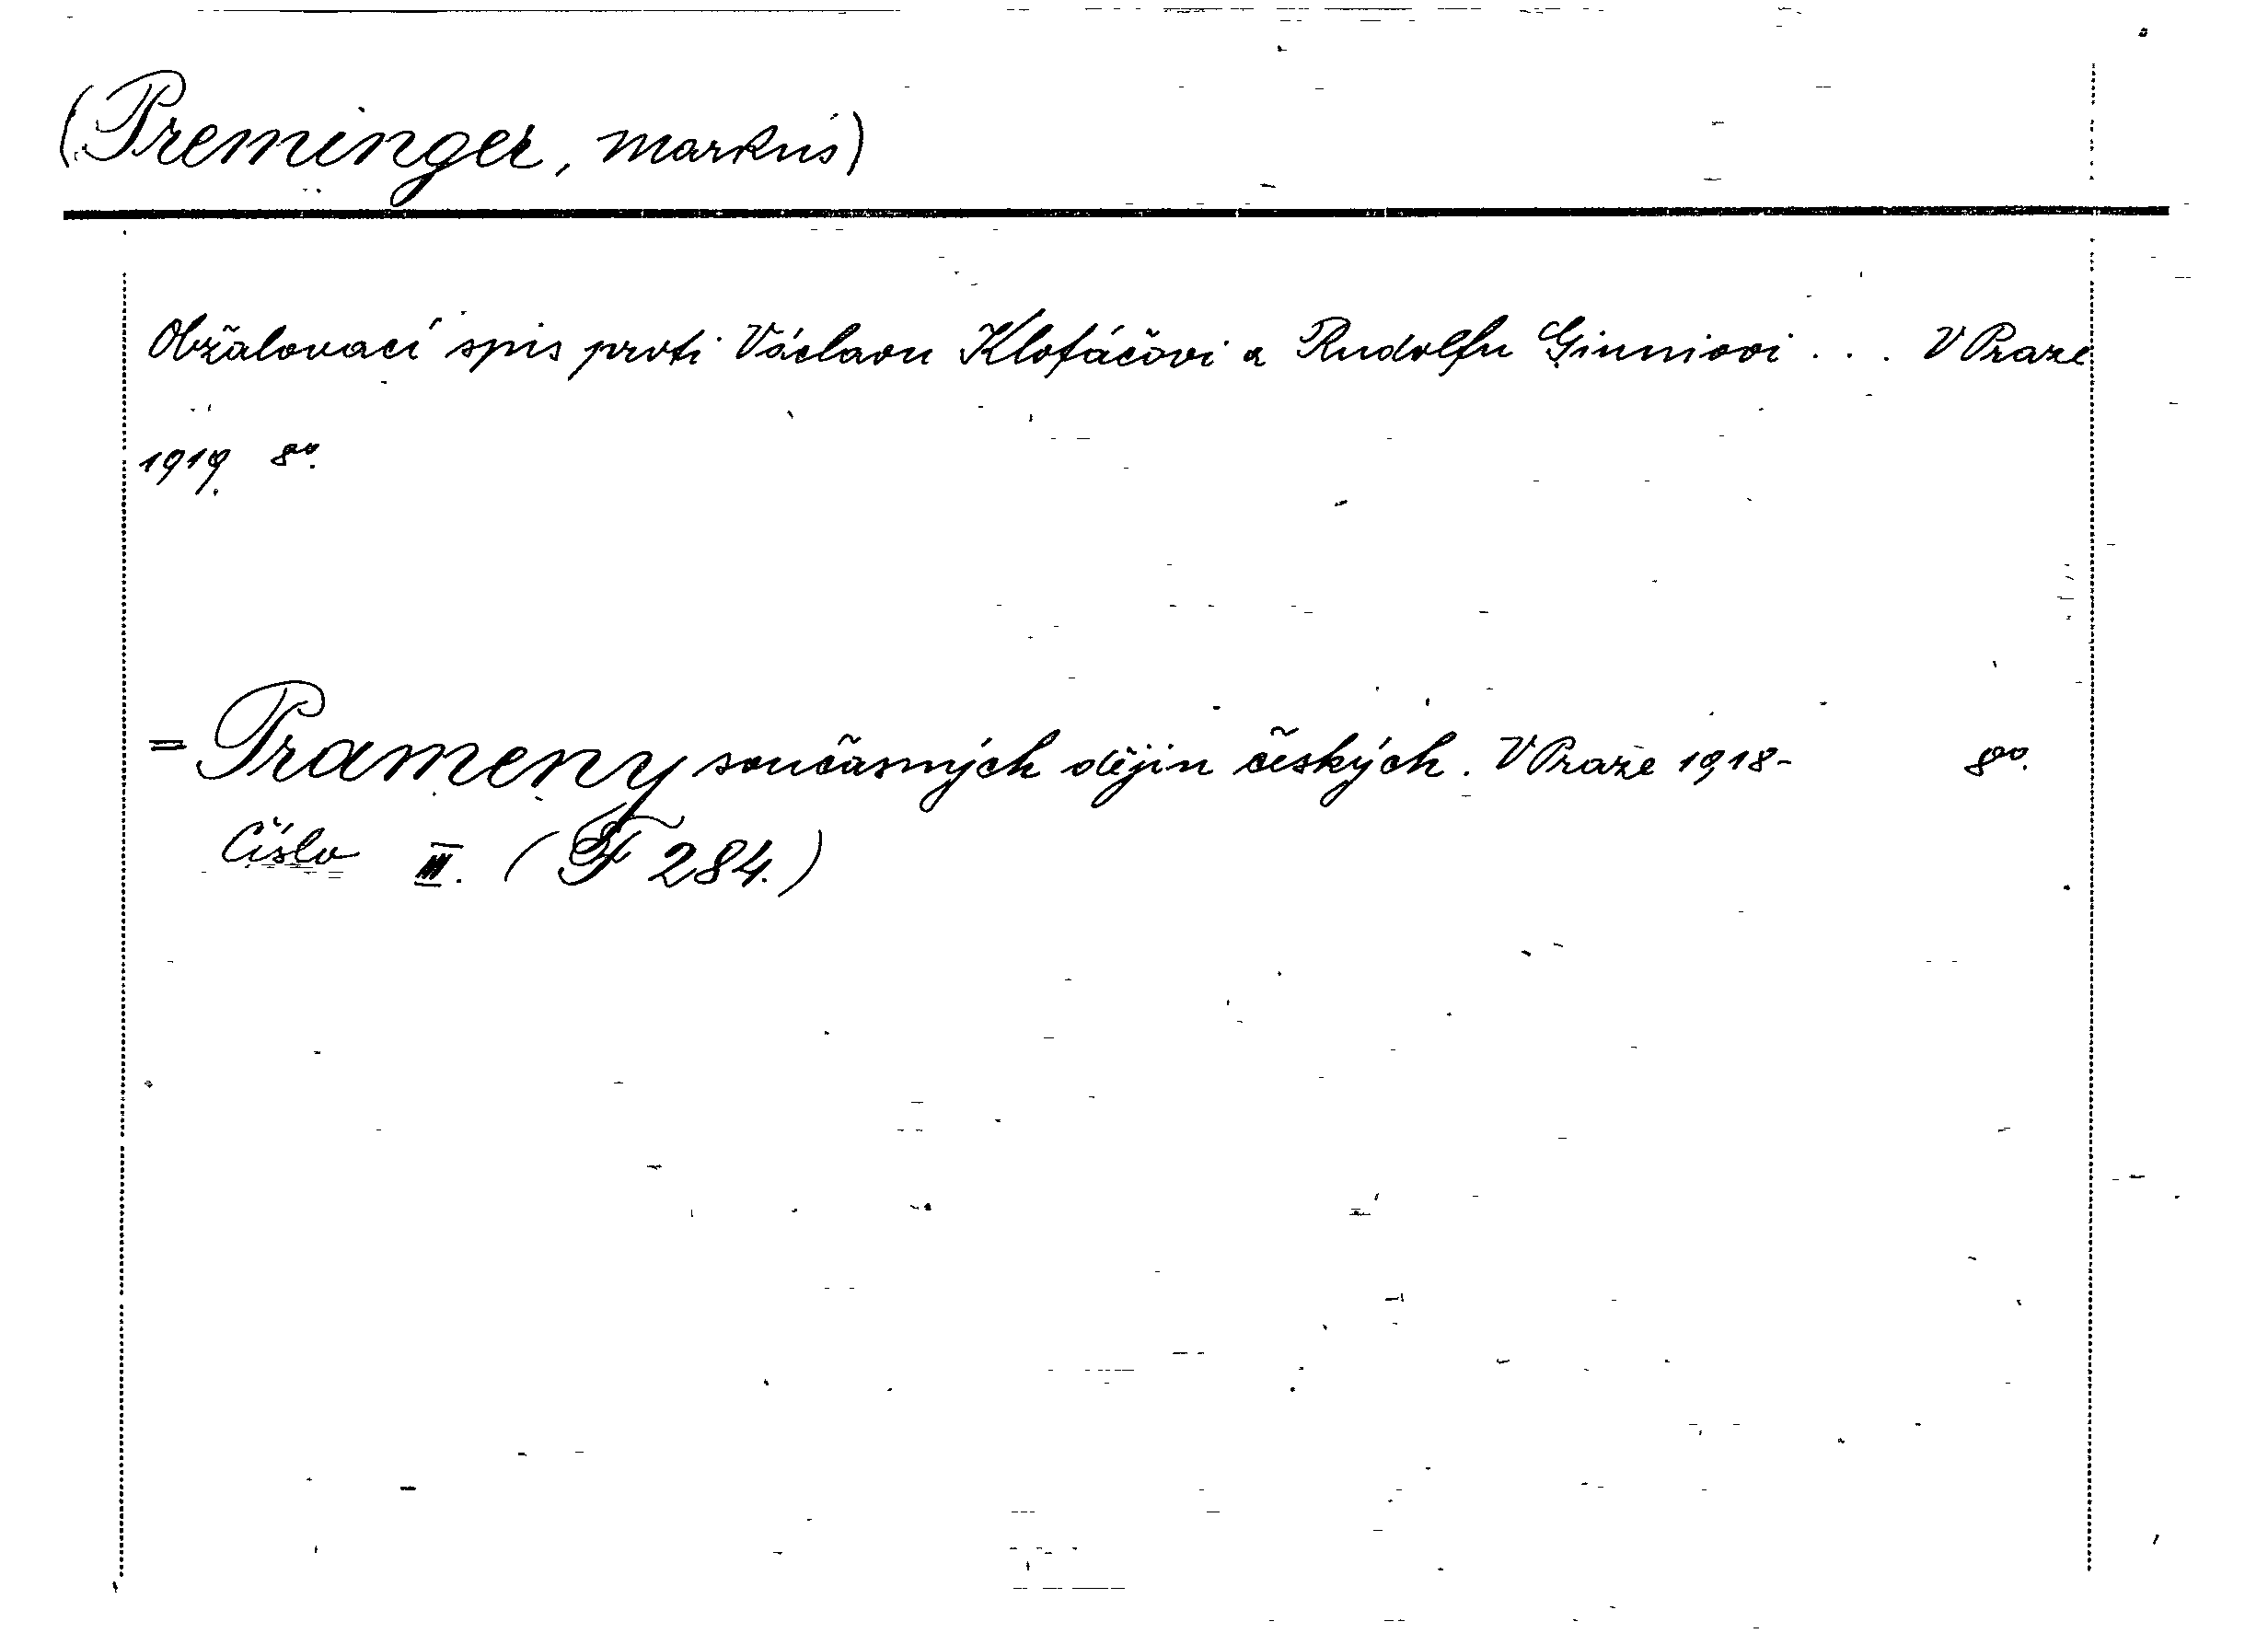 (Preminger, Markus)
Obžalovací spis proti Václavu Klofáčovi a Rudolfu Giuniovi . . . V Praze
1919. 8°.
= Prameny současných dějin českých. V Praze 1918- 8°.
Číslo III. (F 284.)